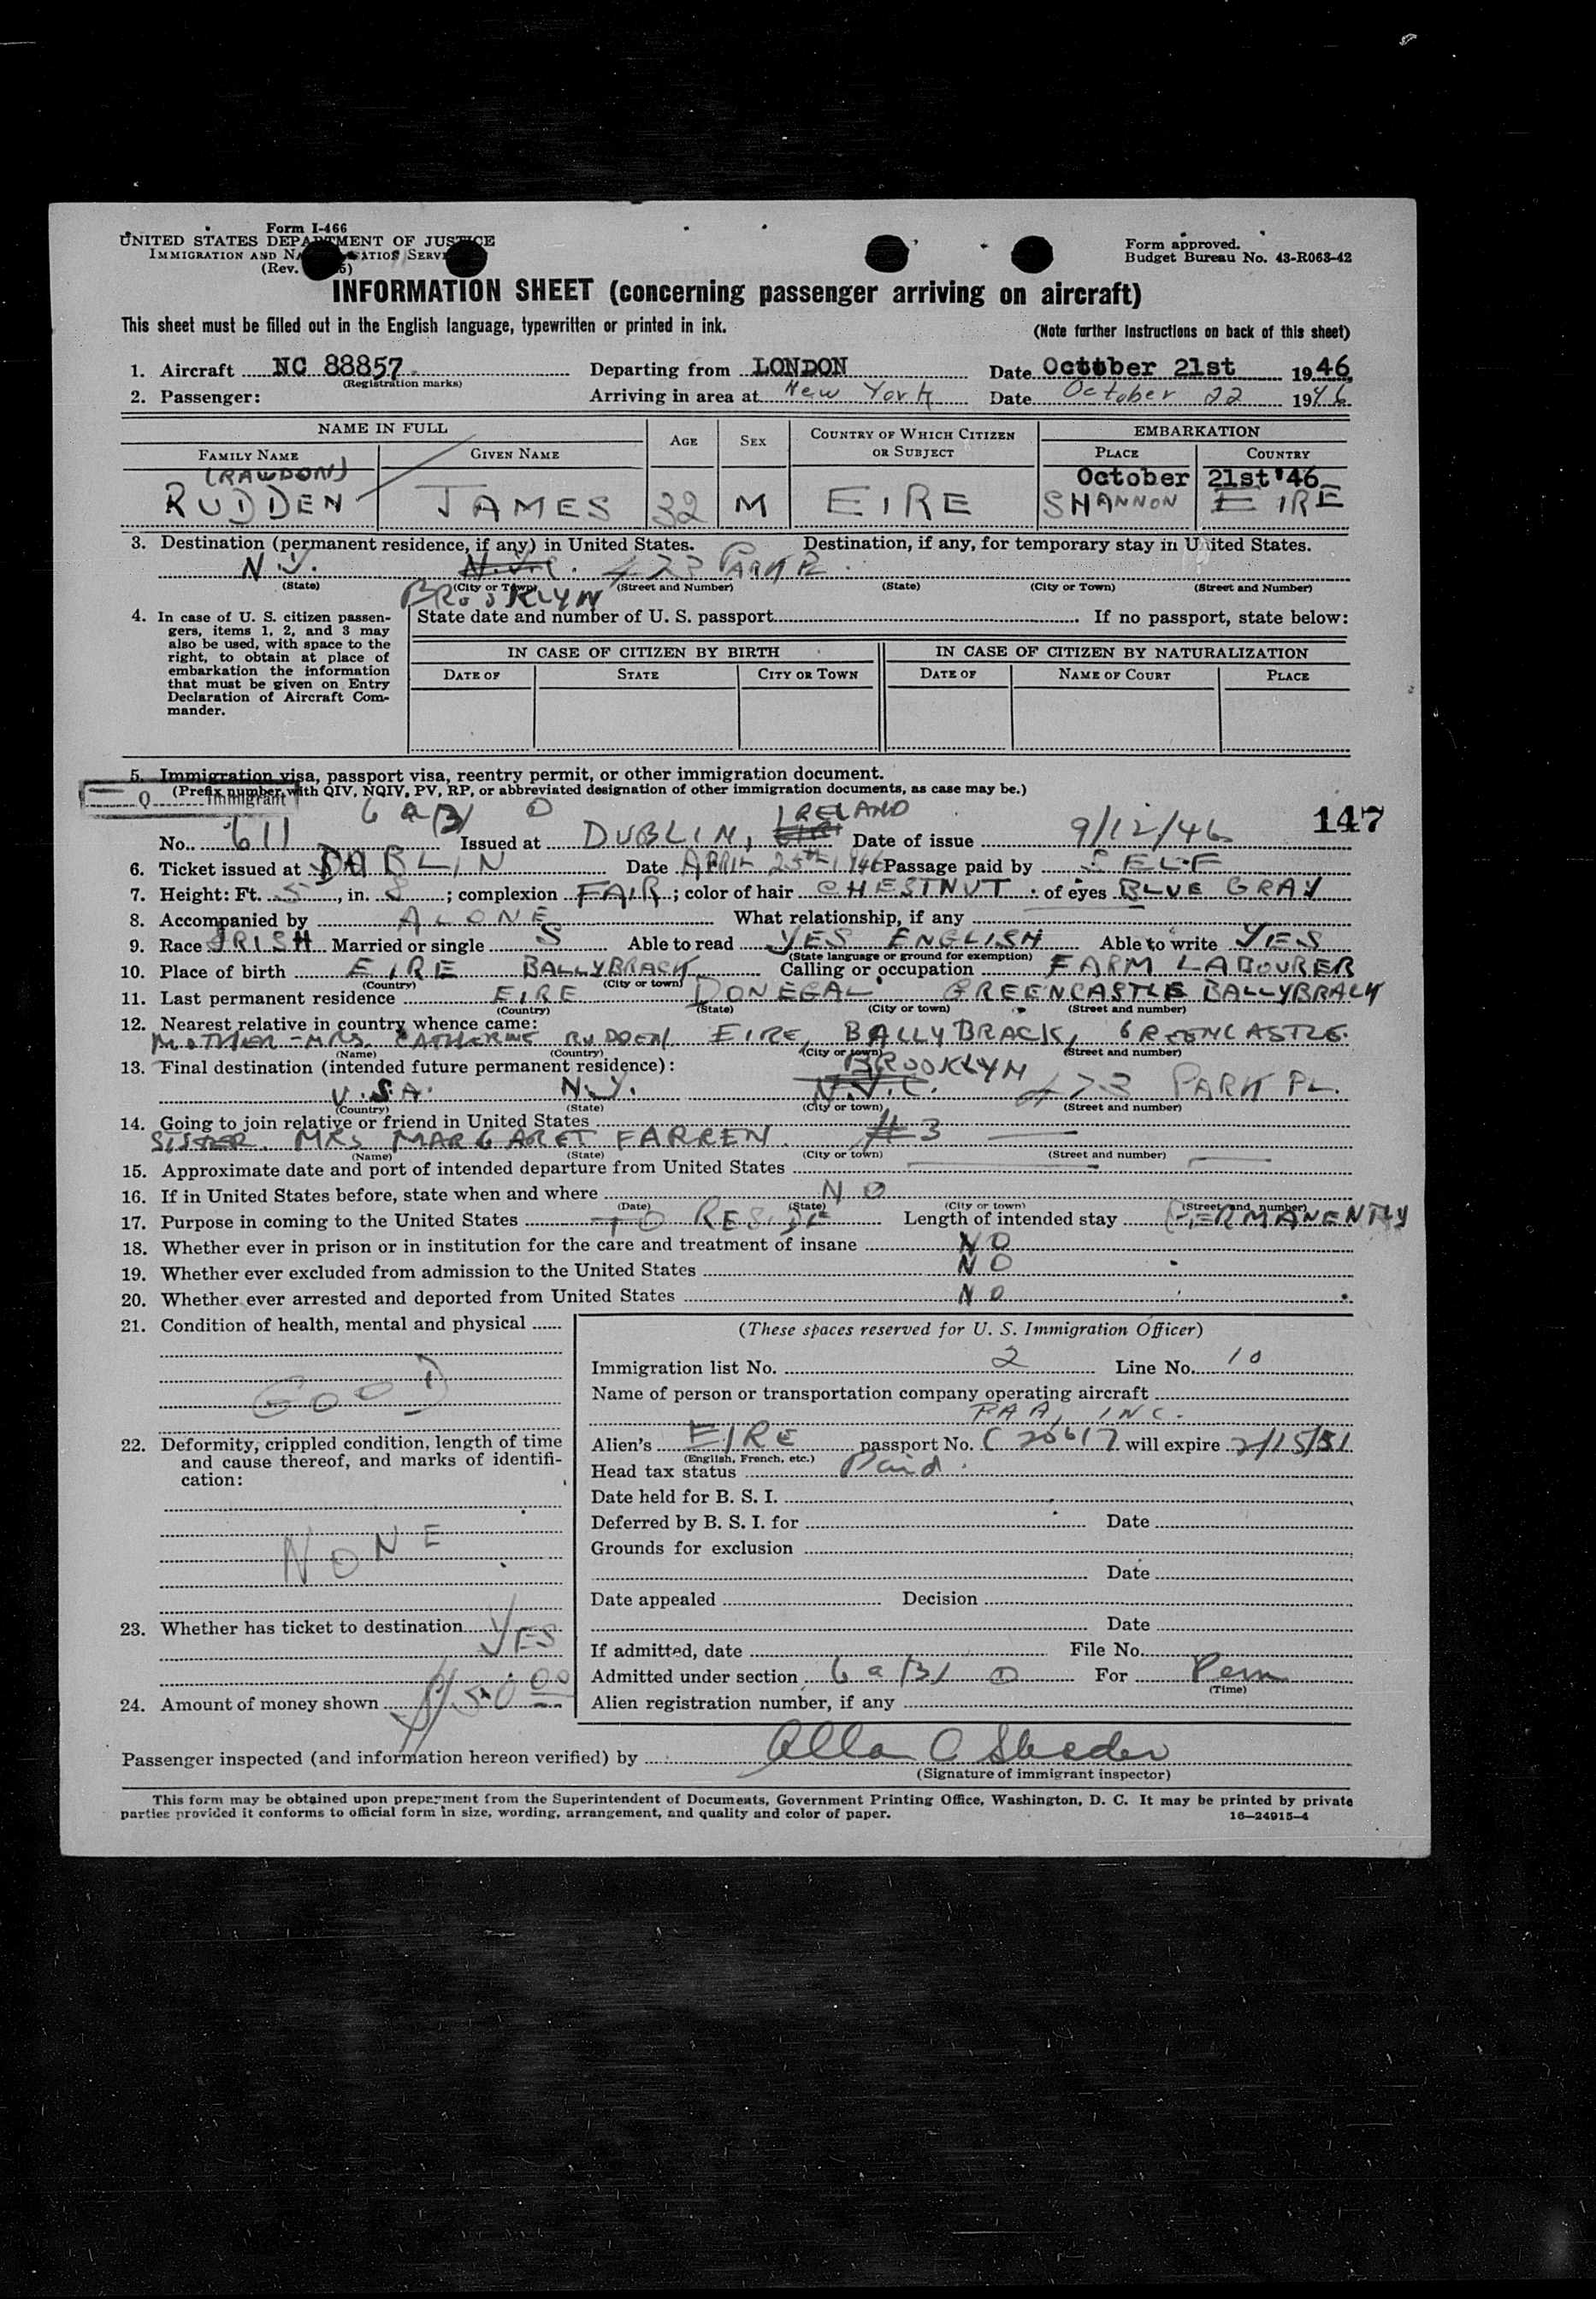 Form I-466
UNITED STATES DEPARTMENT OF JUSTICE
IMMIGRATION AND SERVICE
(Rev.
Form approved.
Budget Bureau No. 43-R063-42
INFORMATION SHEET (concerning passenger arriving on aircraft)
This sheet must be filled out in the English language, typewritten or printed in ink. (Note further instructions on back of this sheet)
1. Aircraft NC 88857 Departing from LONDON Date October 21st 1946
(Registration marks)
2. Passenger: Arriving in area at New York Date October 22 1946
NAME IN FULL AGE SEX COUNTRY OF WHICH CITIZEN OR SUBJECT EMBARKATION
FAMILY NAME GIVEN NAME PLACE COUNTRY
(RAWDON) October 21st '46
RUDDEN JAMES 32 M EIRE SHANNON EIRE
3. Destination (permanent residence, if any) in United States. Destination, if any, for temporary stay in United States.
N.Y. N.Y.C. 473 PARK PL.
(State) (City or Town) (Street and Number) (State) (City or Town) (Street and Number)
BROOKLYN
4. In case of U. S. citizen passengers, items 1, 2, and 3 may also be used, with space to the right, to obtain at place of embarkation the information that must be given on Entry Declaration of Aircraft Commander.
State date and number of U. S. passport If no passport, state below:
IN CASE OF CITIZEN BY BIRTH IN CASE OF CITIZEN BY NATURALIZATION
DATE OF STATE CITY OR TOWN DATE OF NAME OF COURT PLACE
5. Immigration visa, passport visa, reentry permit, or other immigration document.
(Prefix number with QIV, NQIV, PV, RP, or abbreviated designation of other immigration documents, as case may be.)
Q Immigrant
6 a (3) O IRELAND 147
No. 611 Issued at DUBLIN, EIRE Date of issue 9/12/46
6. Ticket issued at DUBLIN Date APRIL 25th 1946 Passage paid by SELF
7. Height: Ft. 5, in. 8; complexion FAIR; color of hair CHESTNUT; of eyes BLUE GRAY
8. Accompanied by ALONE What relationship, if any
9. Race IRISH Married or single S Able to read YES ENGLISH Able to write YES
(State language or ground for exemption)
10. Place of birth EIRE BALLYBRACK Calling or occupation FARM LABOURER
(Country) (City or town)
11. Last permanent residence EIRE DONEGAL GREENCASTLE BALLYBRACK
(Country) (State) (City or town) (Street and number)
12. Nearest relative in country whence came:
MOTHER - MRS. CATHERINE RUDDEN EIRE, BALLYBRACK, GREENCASTLE.
(Name) (Country) (City or town) (Street and number)
13. Final destination (intended future permanent residence): BROOKLYN
U.S.A. N.Y. N.Y.C. 473 PARK PL.
(Country) (State) (City or town) (Street and number)
14. Going to join relative or friend in United States
SISTER. MRS MARGARET FARREN. #3
(Name) (State) (City or town) (Street and number)
15. Approximate date and port of intended departure from United States
16. If in United States before, state when and where NO
(Date) (State) (City or town) (Street and number)
17. Purpose in coming to the United States TO RESIDE Length of intended stay PERMANENTLY
18. Whether ever in prison or in institution for the care and treatment of insane NO
19. Whether ever excluded from admission to the United States NO
20. Whether ever arrested and deported from United States NO
21. Condition of health, mental and physical
GOOD
22. Deformity, crippled condition, length of time and cause thereof, and marks of identification:
NONE
23. Whether has ticket to destination YES
24. Amount of money shown $150.00
(These spaces reserved for U. S. Immigration Officer)
Immigration list No. 2 Line No. 10
Name of person or transportation company operating aircraft
PAA, INC.
Alien's EIRE passport No. C 20617 will expire 2/15/51
(English, French, etc.)
Head tax status Paid.
Date held for B. S. I.
Deferred by B. S. I. for Date
Grounds for exclusion
Date
Date appealed Decision
Date
If admitted, date File No.
Admitted under section 6 a (3) O For Perm
(Time)
Alien registration number, if any
Passenger inspected (and information hereon verified) by
(Signature of immigrant inspector)
This form may be obtained upon prepayment from the Superintendent of Documents, Government Printing Office, Washington, D. C. It may be printed by private
parties provided it conforms to official form in size, wording, arrangement, and quality and color of paper. 16—24915-4